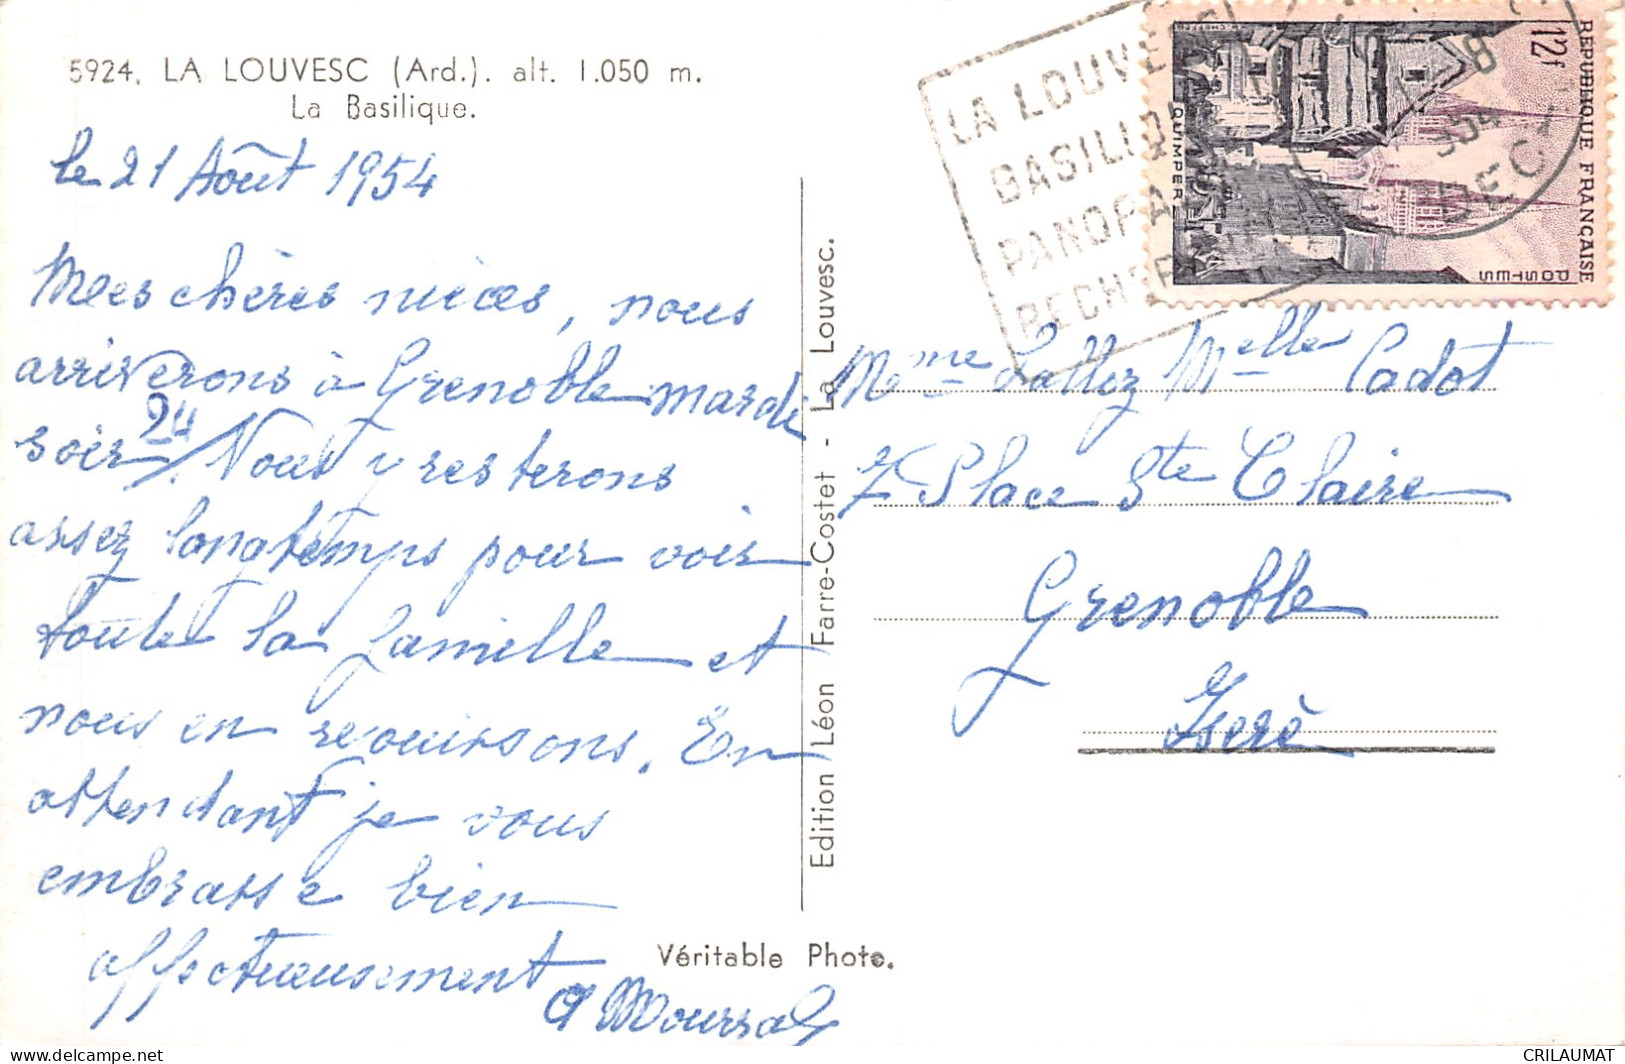 5924. LA LOUVESC (Ard.). alt. 1.050 m.
La Basilique.
le 21 Août 1954
Mes chères nièces, nous
arriverons à Grenoble mardi
24
soir. Nous y resterons
assez longtemps pour voir
toute la famille et
nous en rejouissons. En
attendant je vous
embrasse bien
affectueusement
Edition Léon Farre-Costet - La Louvesc.
Véritable Photo.
LA LOUVESC
BASILIQUE
PANORA
REPUBLIQUE FRANÇAISE
12f
POSTES
QUIMPER
Mme Lallez Melle Cadot
7 Place Ste Claire
Grenoble
Iserè
CRILAUMAT
delcampe.net